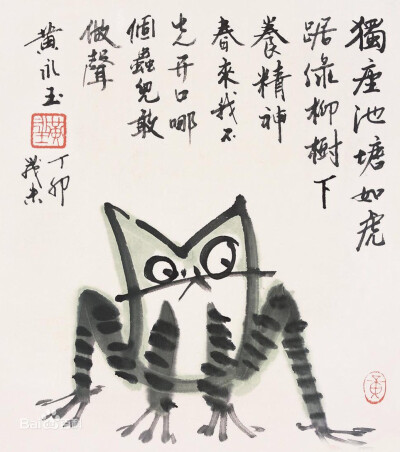 獨座池塘如虎
踞綠柳樹下
養精神
春來我不
先开口哪
個蟲兒敢
做聲
黄永玉
丁卯
歲末